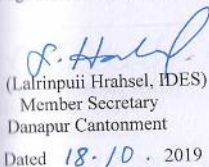 (Lalrinpuii Hrahsel, IDES)
Member Secretary
Danapur Cantonment
Dated 18.10.2019